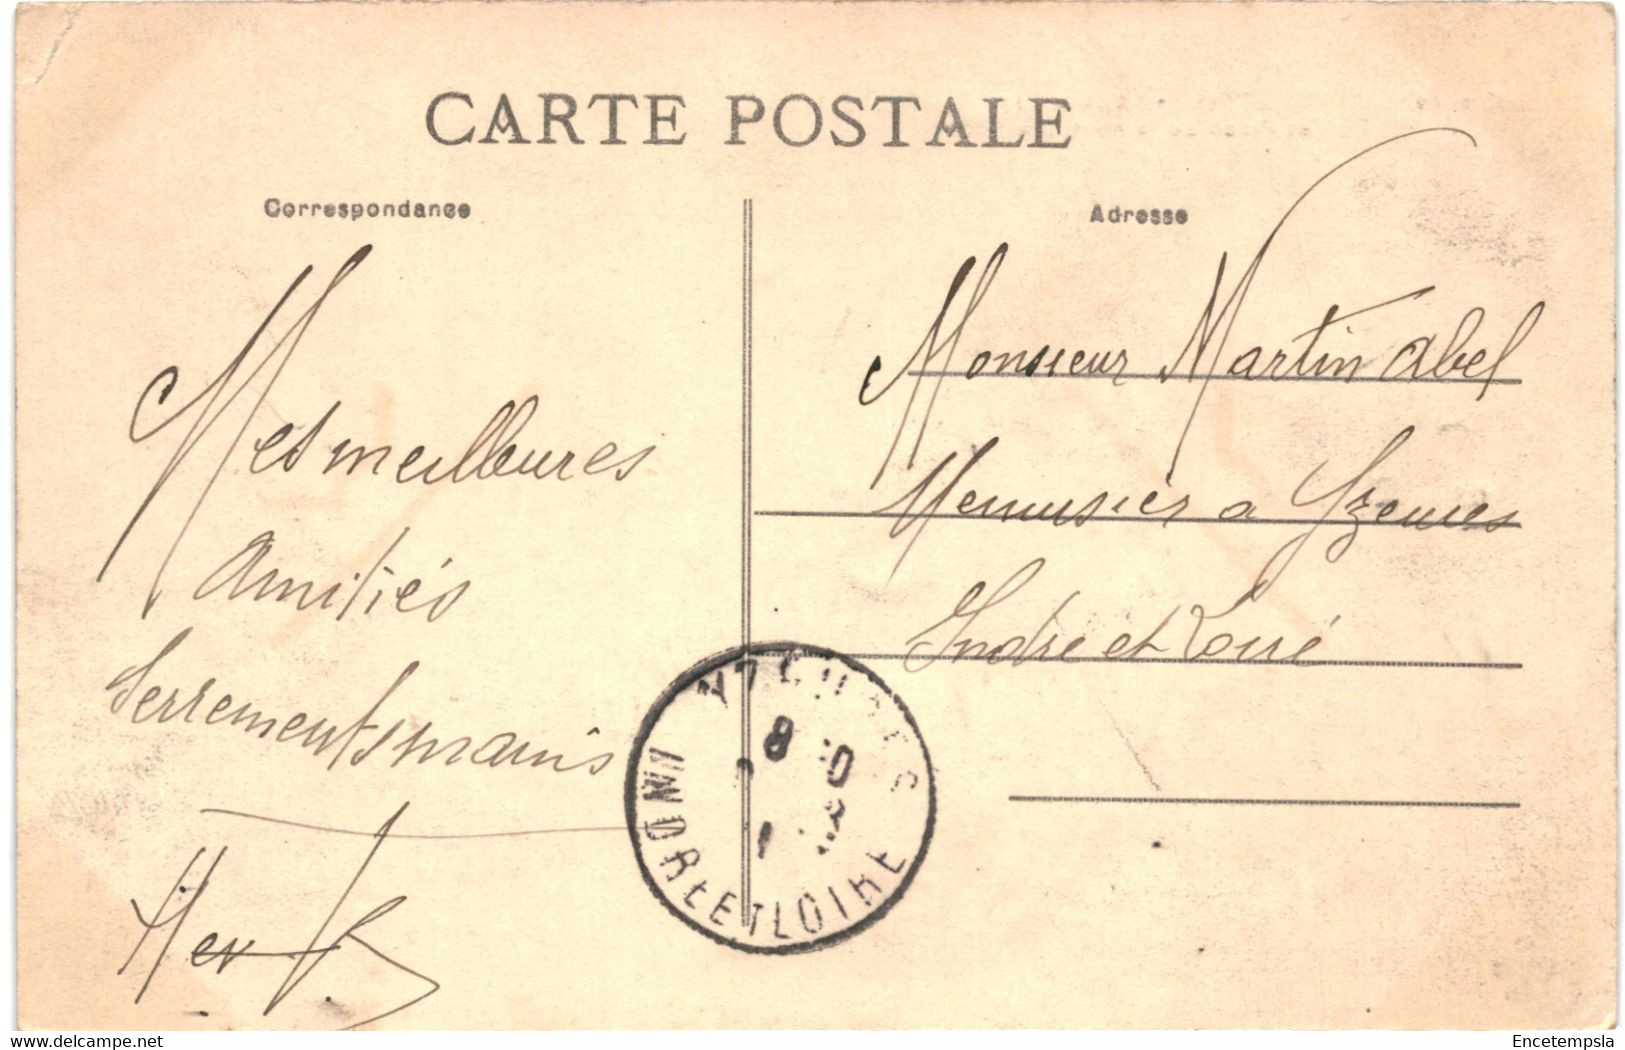 CARTE POSTALE
Correspondance
Adresse
Mes meilleures
Amitiés
Serrements mains
Monsieur Martin Abel
Menuisier a Yzeures
Indre et Loire
8
INDRE ET LOIRE
delcampe.net
Encetempsla